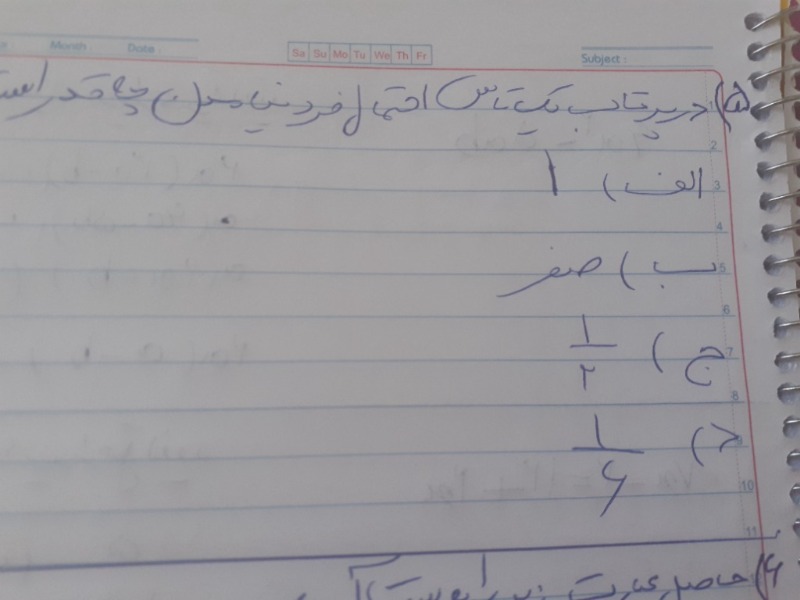 Month: Date:
Sa Su Mo Tu We Th Fr
Subject:
۵) در پرتاب یک تاس احتمال فرد نیامدن چقدر است
الف) ۱
ب) صفر
ج) ۱/۲
د) ۱/۶
۶) حاصل عبارت
1
2
3
4
5
6
7
8
9
10
11